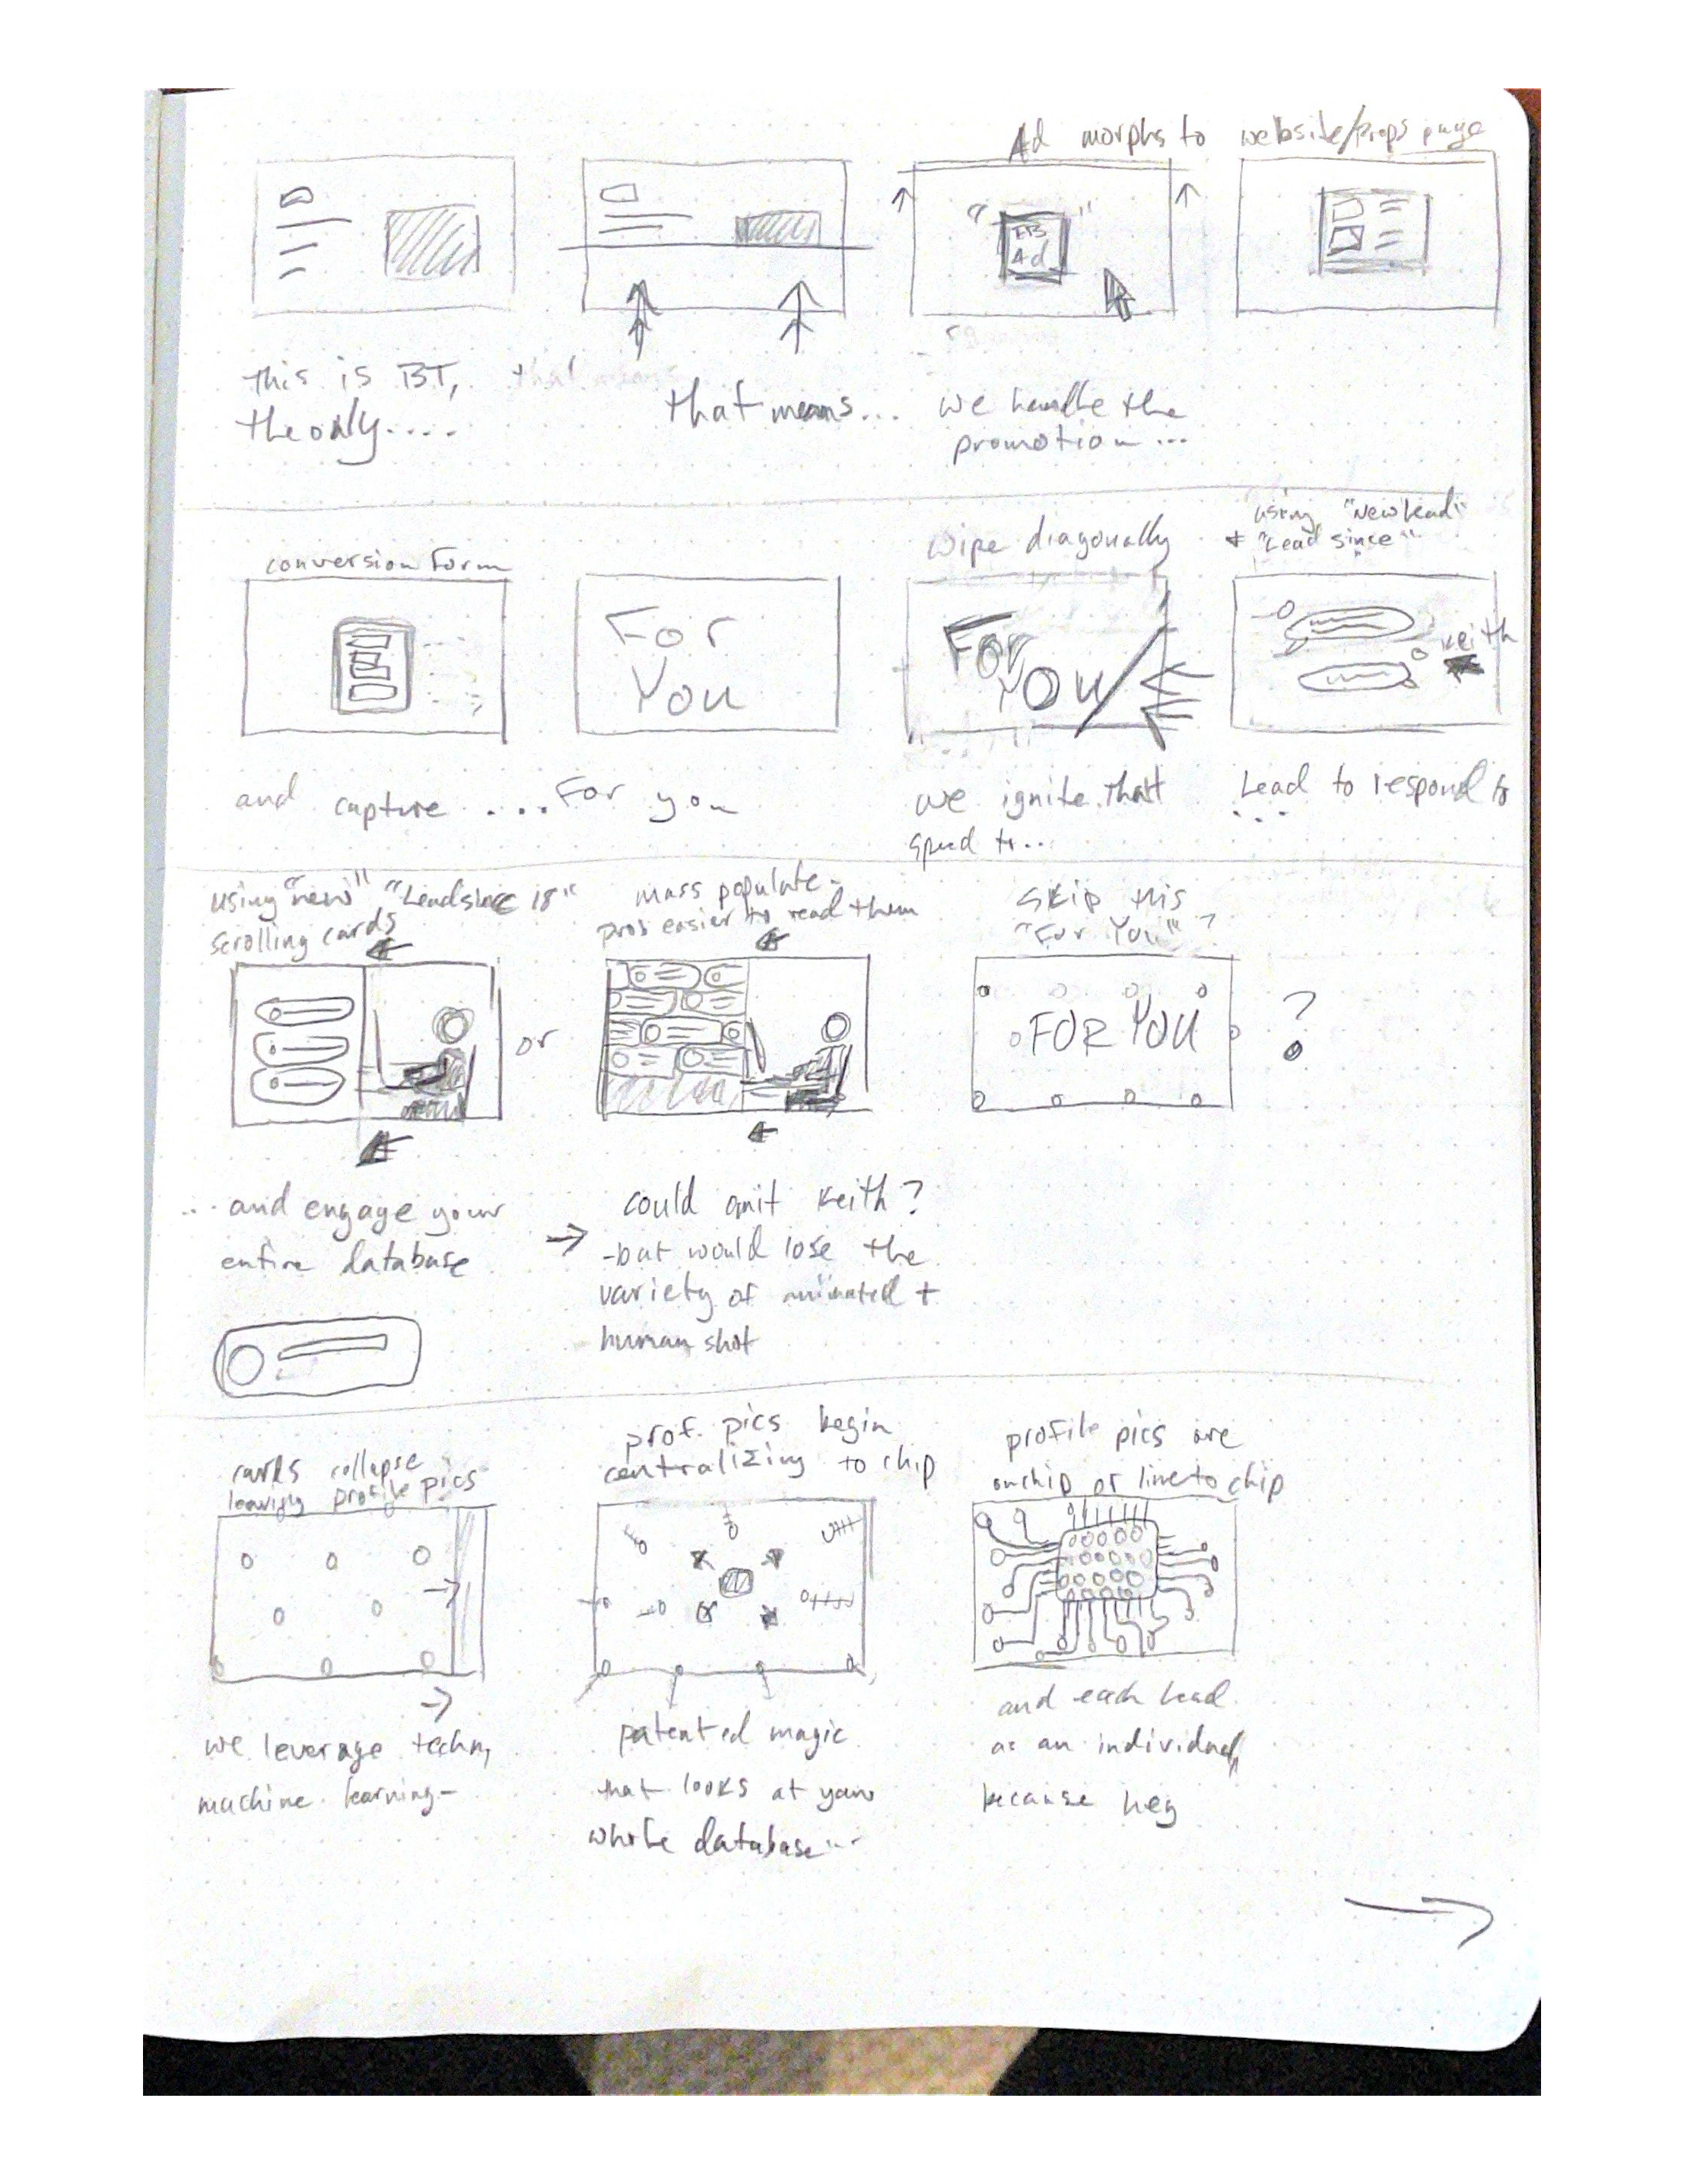 Ad morphs to website/props page
FB
Ad
this is BT,
the only....
that means...
we handle the
promotion...
conversion form
For
You
wipe diagonally
For
You
using "New Lead"
+ "Lead since"
Keith
and capture ....For you
we ignite that
speed to...
Lead to respond to
...
using "new" "Lead since 18"
scrolling cards
or
mass populate-
pros easier to read them
skip this
"For You"?
FOR YOU
?
...and engage your
entire database
→ could omit Keith?
-but would lose the
variety of animated +
human shot
cards collapse
leaving profile pics
prof. pics begin
centralizing to chip
profile pics are
on chip or line to chip
we leverage techn,
machine learning-
patented magic
that looks at your
whole database...
and each lead
as an individual,
because hey